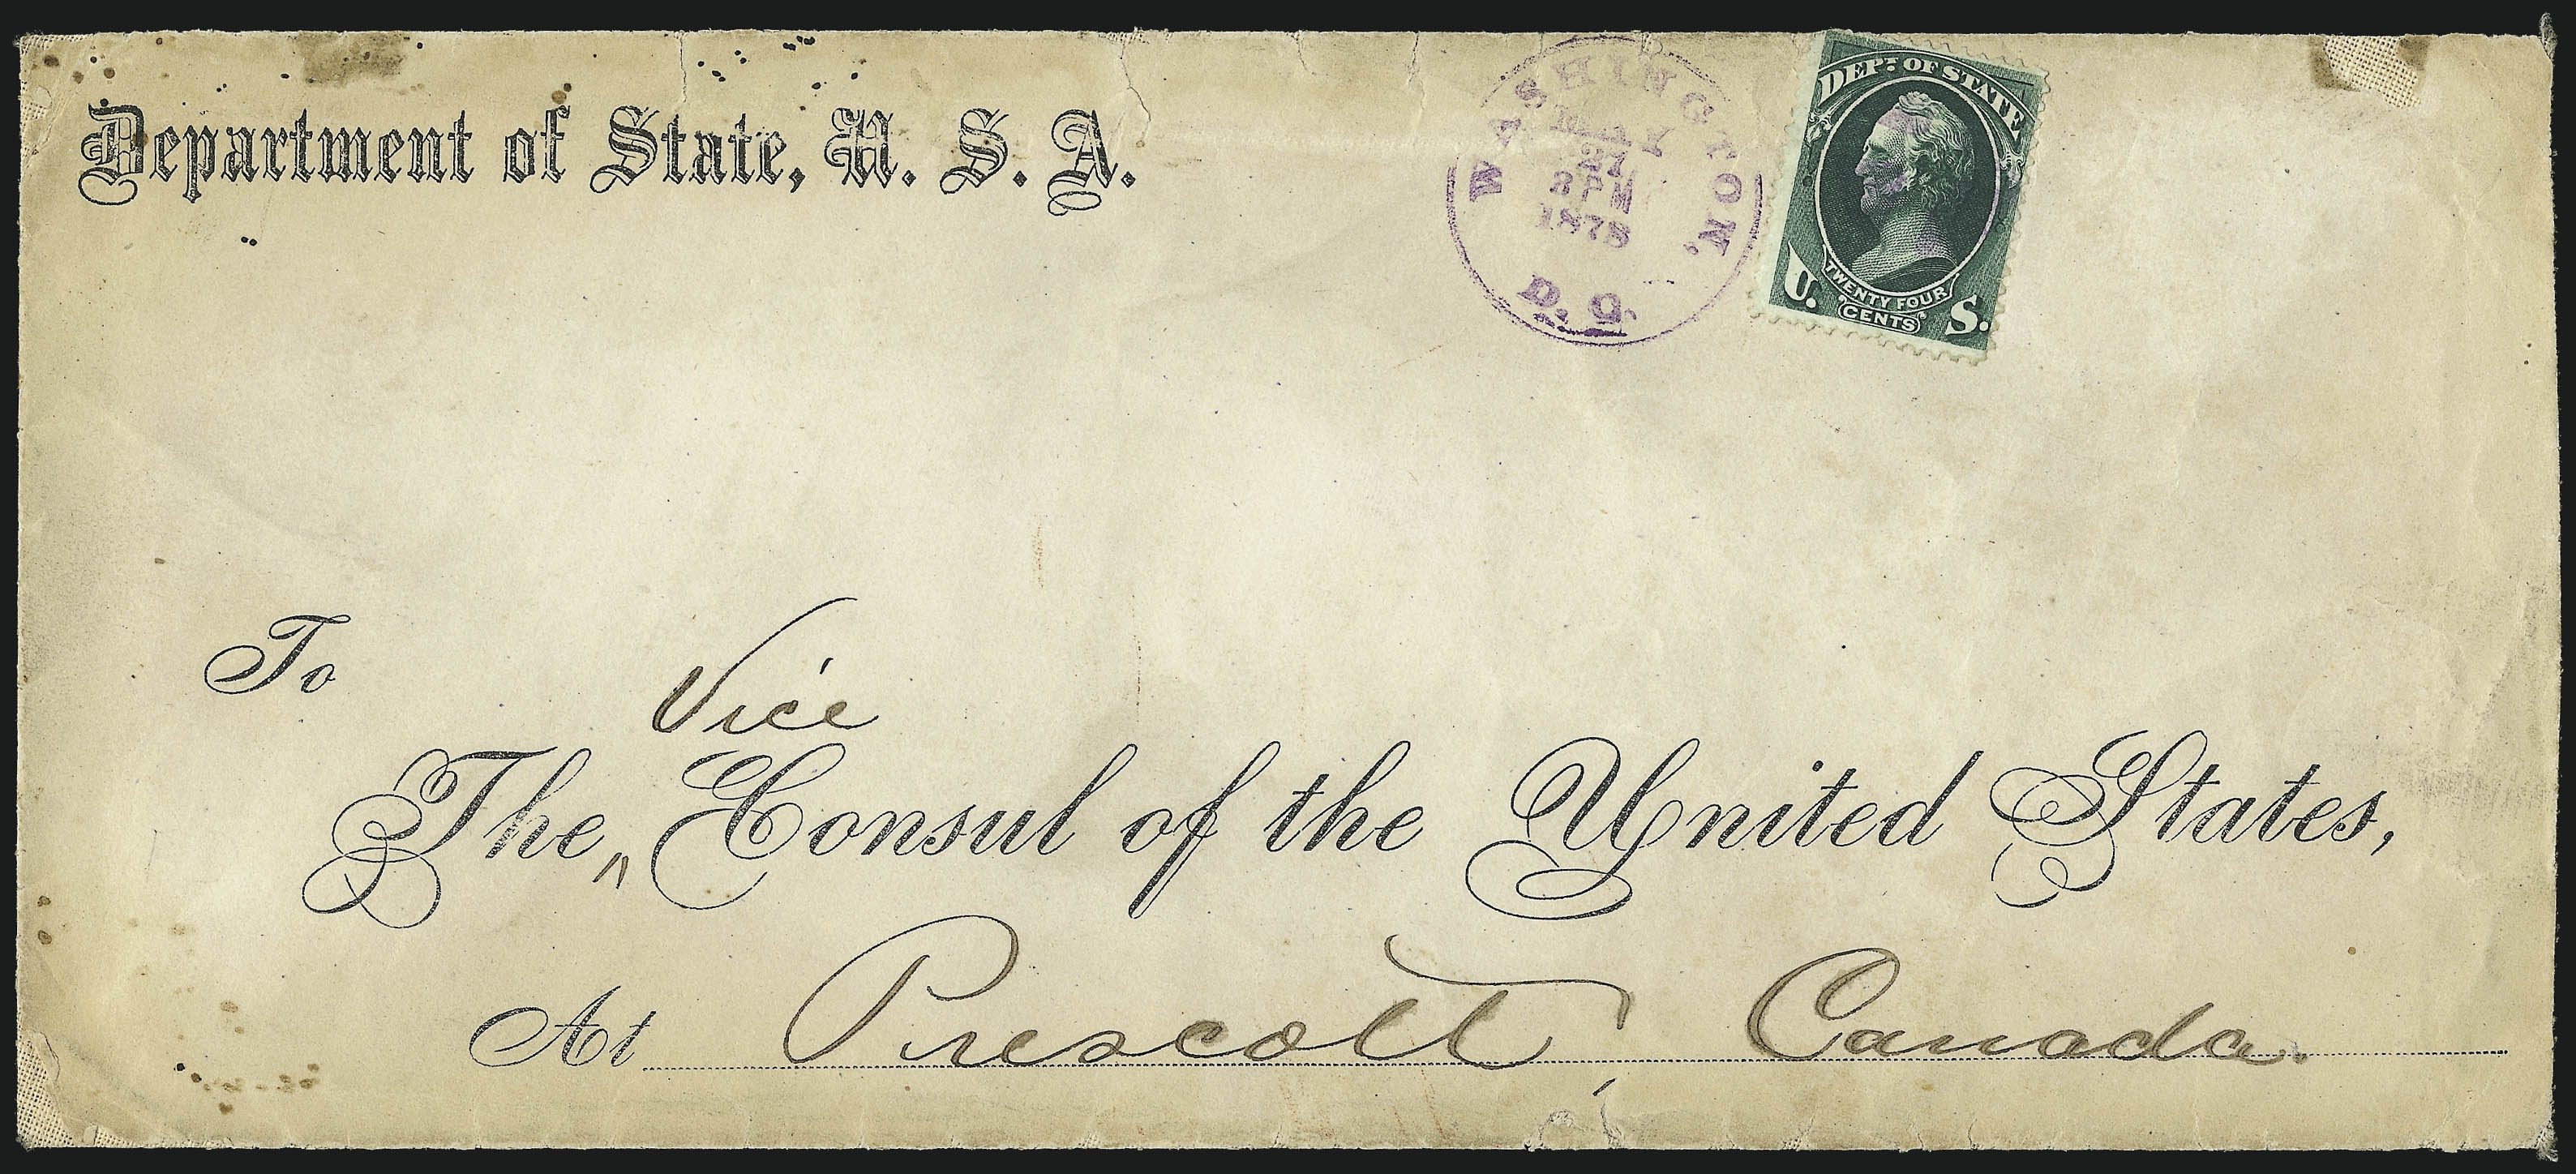 Department of State, U. S. A.
WASHINGTON.
MAY
27
2 PM
1878
D. C.
DEPT. OF STATE
U. S.
TWENTY FOUR
CENTS
To
Vice
The ^ Consul of the United States,
At Prescott, Canada.